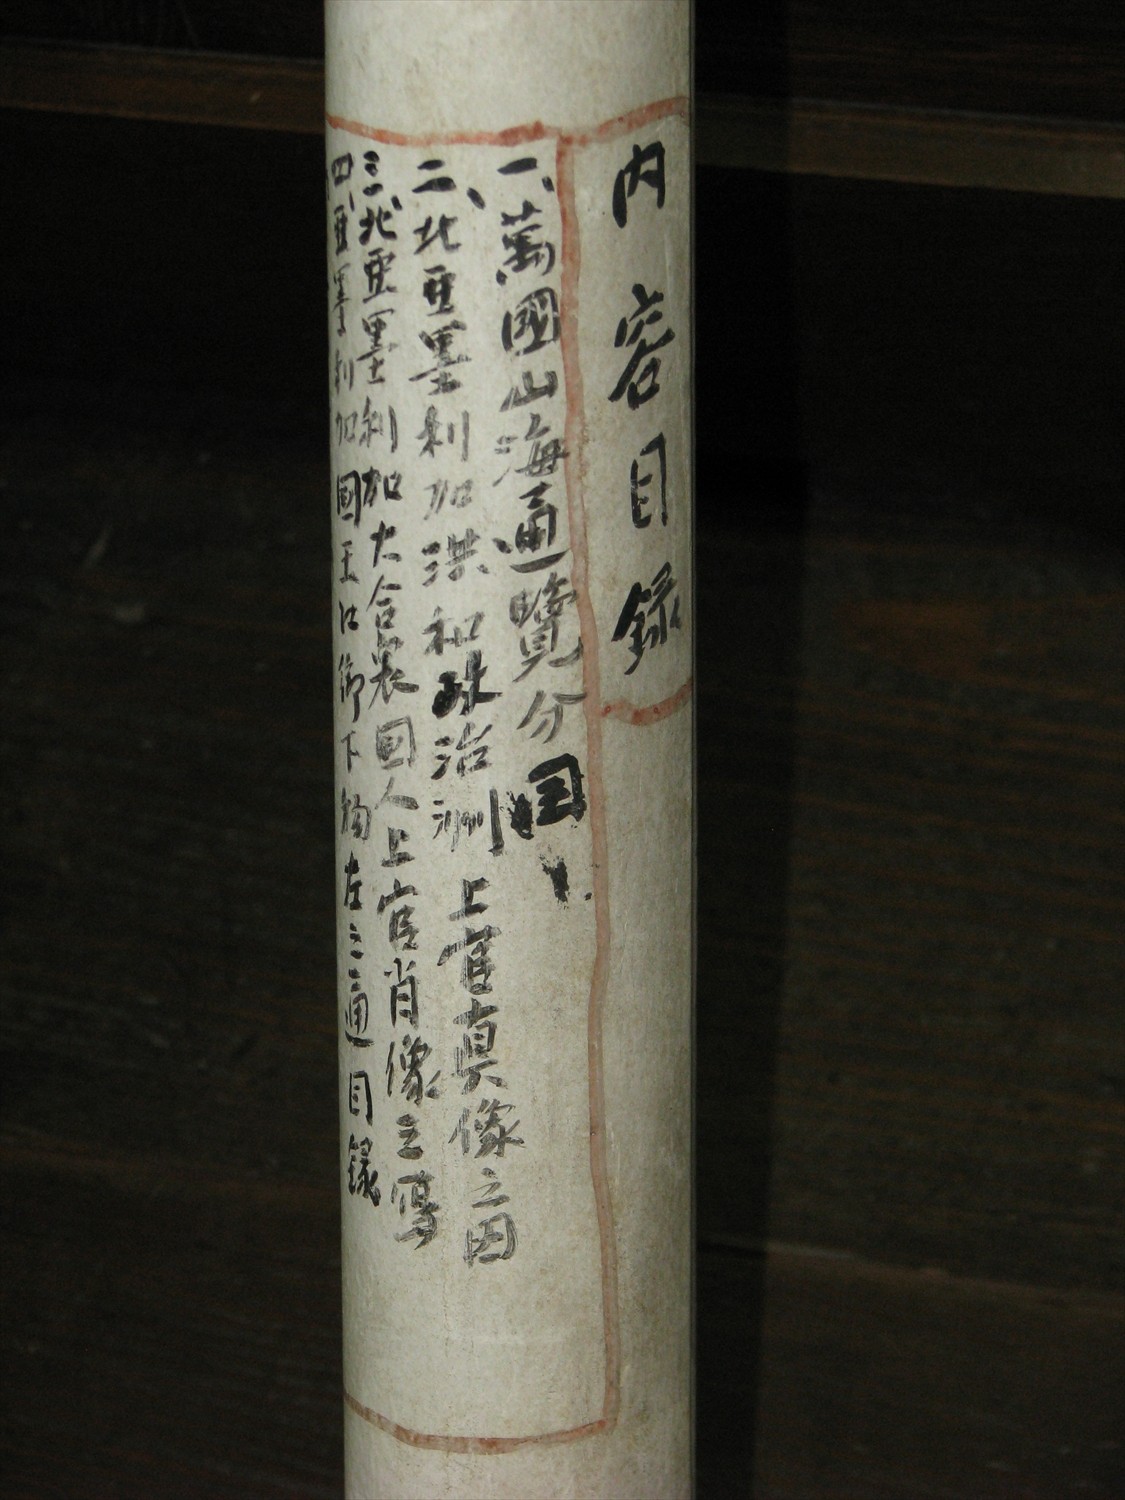 内容目録
一、萬國山海通覽分図
二、北亜墨利加洪和政治洲上官真像之図
三、北亜墨利加大合衆國人上官肖像之写
四、亜墨利加國王江御下物左之通目録